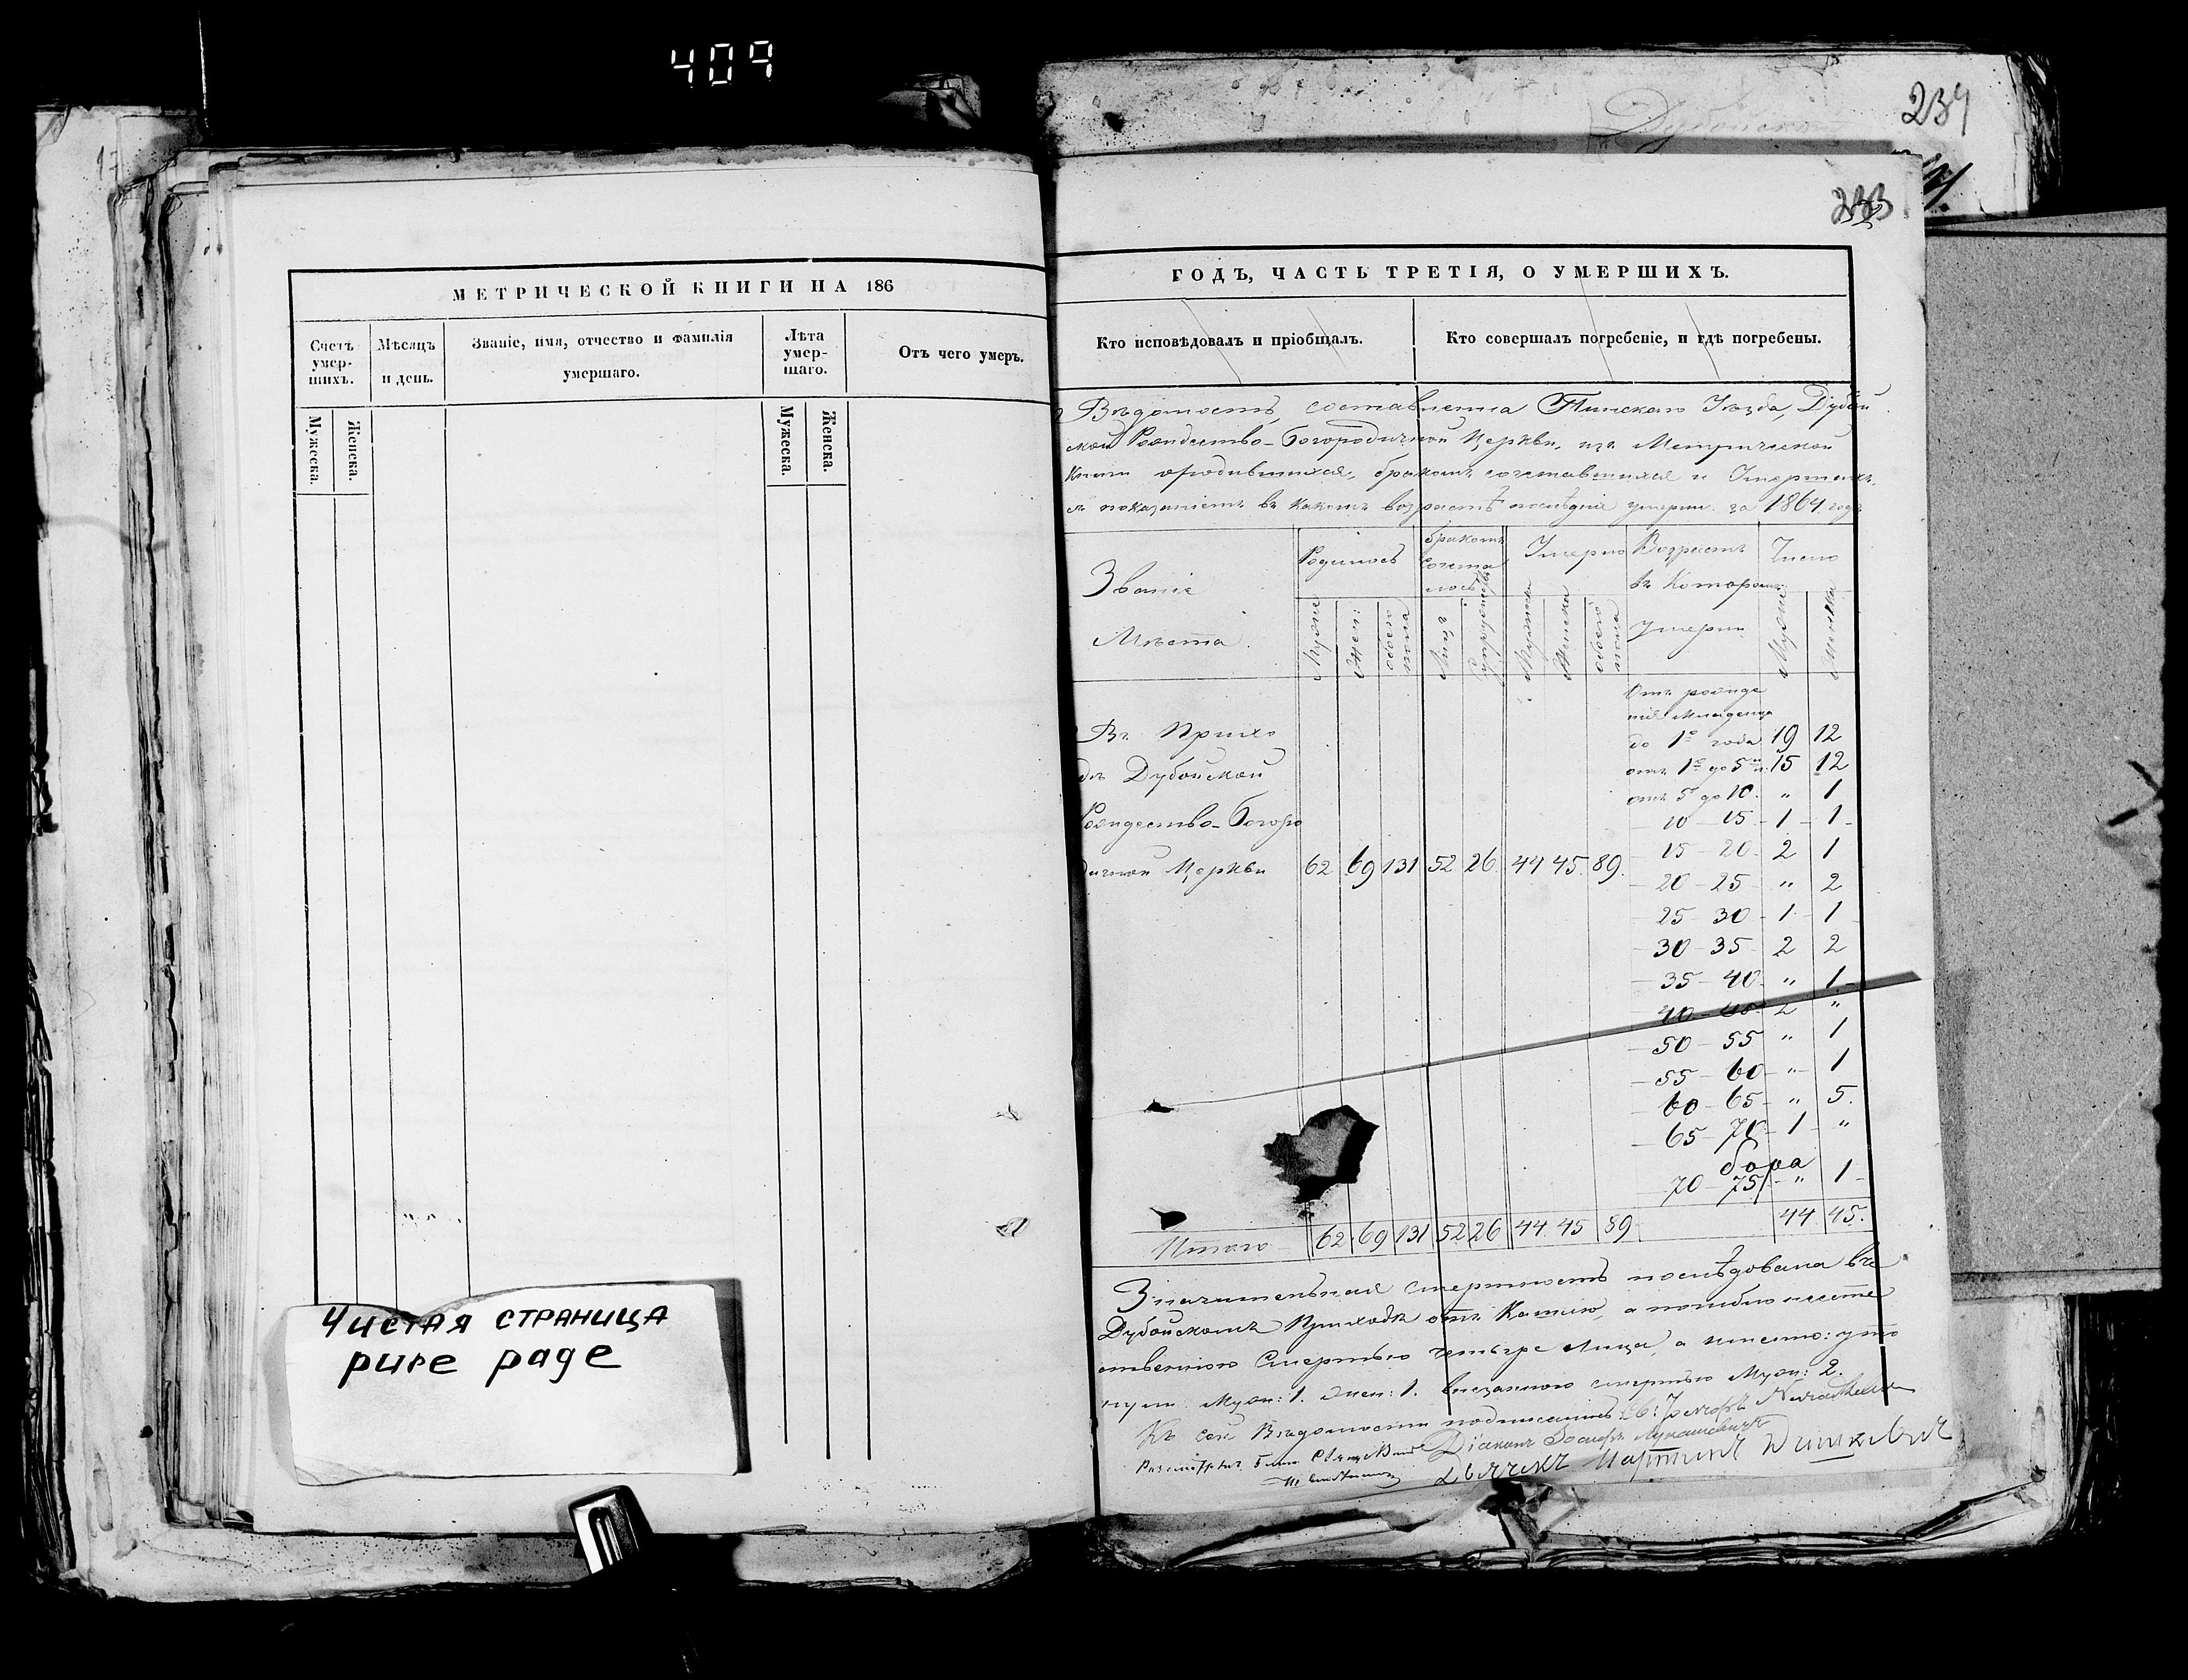 409
239
Дубойской
233
МЕТРИЧЕСКОЙ КНИГИ НА 186
Счетъ умер-шихъ.
Мужеска.
Женска.
Мѣсяцъ и день.
Званіе, имя, отчество и фамилія умершаго.
Лѣта умер-шаго.
Мужеска.
Женска.
Отъ чего умеръ.
Чистая страница
pure page
ГОДЪ, ЧАСТЬ ТРЕТІЯ, О УМЕРШИХЪ.
Кто исповѣдовалъ и пріобщалъ.
Кто совершалъ погребеніе, и гдѣ погребены.
Вѣдомость, составленна Пинскаго Уѣзда, Дубой
ской Рождество-Богородичной Церкви, изъ Метрической
Книги о родившихся, бракомъ сочетавшихся и Умершихъ,
съ показаніемъ въ какомъ возрастѣ послѣдніе умерли за 1864 годъ
Званіе Мѣста.
Родилось
Муже
Жен:
обоего пола
бракомъ сочета лось
Лицъ
Супружествъ
Умерло
Мужеска
Женска
обоего пола
Возрастъ въ Которомъ умерли
Число
Муже
Женска
Въ Прихо
дѣ Дубойской
Рождество-Богоро
дичной Церкви 62 69 131 52 26 44 45 89
Отъ рожде
нія младенца
до 1го года 19 12
отъ 1го до 5ти 15 12
отъ 5 до 10 " 1
10 – 15 – 1 – 1
15 – 20 2 1
20 – 25 " 2
25 – 30 – 1 – 1
30 – 35 2 2
35 – 40 " 1
40 – 2 "
50 – 55 " 1
55 – 60 – " – 1
60 – 65 – " 5.
65 – 70 – 1 – "
70 – 75 " 1
Итого 62 69 131 52 26 44 45 89 44 45.
Значительная смертность послѣдовала въ
Дубойскомъ Приходѣ отъ Кашлю, а погибло неесте
ственною Смертью четыре лица, а именно: уто
нули Муж: 1. Жен: 1. внезапною смертью Муж: 2.
Къ сей Вѣдомости подписались
Діаконъ Іосифъ Лукашевичъ
Дьячекъ Мартинъ